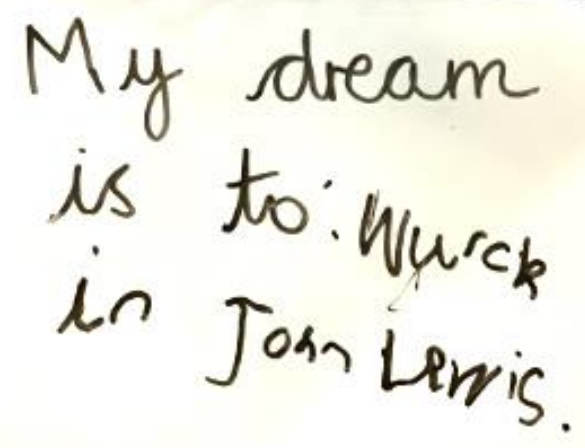 My dream
is to: Wurck
in Jonn Lewis.